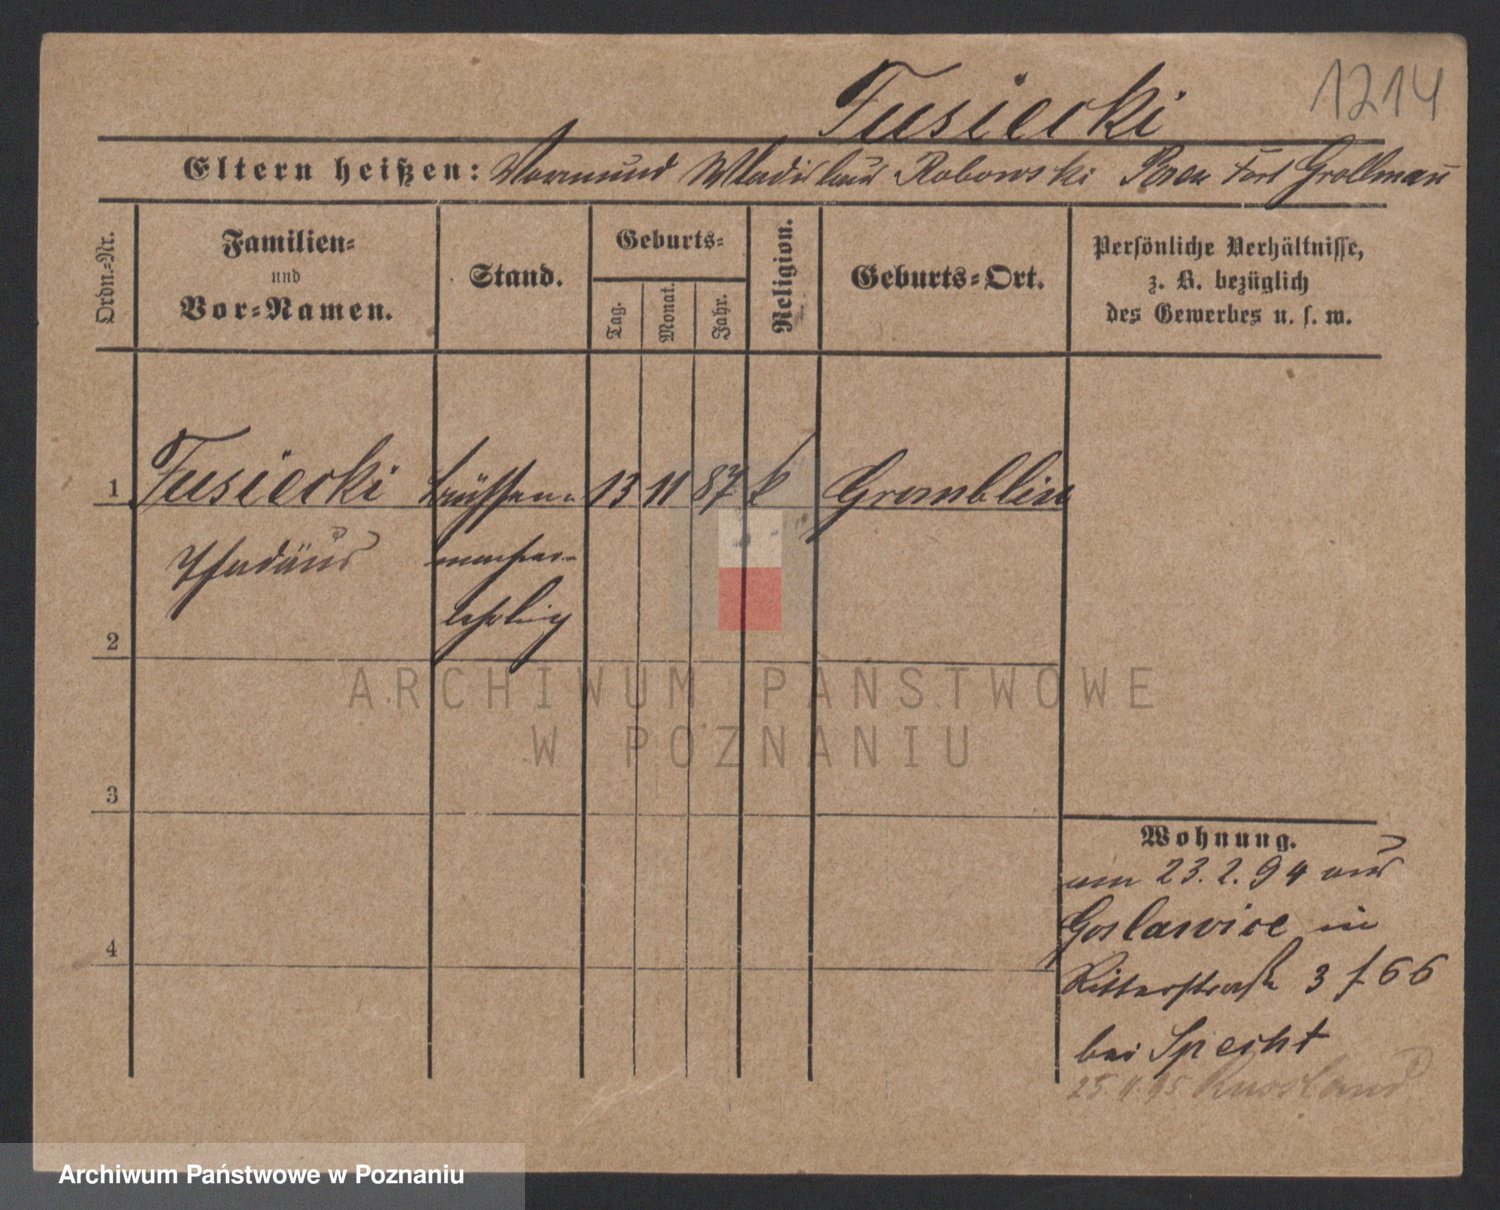 1214
Tusiecki
Eltern heißen: Vormund Wladislaus Robowski Posen Fort Grollman
Ordn.-Nr.
Familien-
und
Vor-Namen.
Stand.
Geburts-
Tag.
Monat.
Jahr.
Religion.
Geburts-Ort.
Persönliche Verhältnisse,
z. B. bezüglich
des Gewerbes u. s. w.
1 Tusiecki Büchsen- 13 11 87 k Gromblin
Thadäus macher-
lehrling
2
ARCHIWUM PAŃSTWOWE
W POZNANIU
3
4
Wohnung.
am 23.2.94 aus
Goslawice in
Ritterstraße 3 f. 66
bei Specht
25. 11. 95 Russland
Archiwum Państwowe w Poznaniu